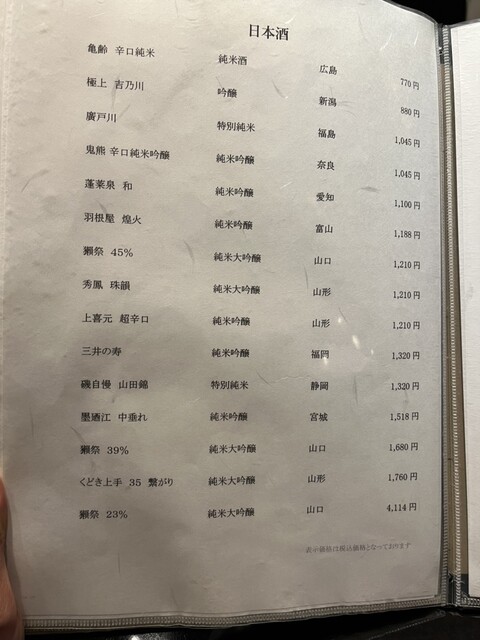 日本酒
亀齢 辛口純米 純米酒 広島 770円
極上 吉乃川 吟醸 新潟 880円
廣戸川 特別純米 福島 1,045円
鬼熊 辛口純米吟醸 純米吟醸 奈良 1,045円
蓬莱泉 和 純米吟醸 愛知 1,100円
羽根屋 煌火 純米吟醸 富山 1,188円
獺祭 45% 純米大吟醸 山口 1,210円
秀鳳 珠韻 純米大吟醸 山形 1,210円
上喜元 超辛口 純米吟醸 山形 1,210円
三井の寿 純米吟醸 福岡 1,320円
磯自慢 山田錦 特別純米 静岡 1,320円
墨廼江 中垂れ 純米吟醸 宮城 1,518円
獺祭 39% 純米大吟醸 山口 1,680円
くどき上手 35 繋がり 純米大吟醸 山形 1,760円
獺祭 23% 純米大吟醸 山口 4,114円
表示価格は税込価格となっております